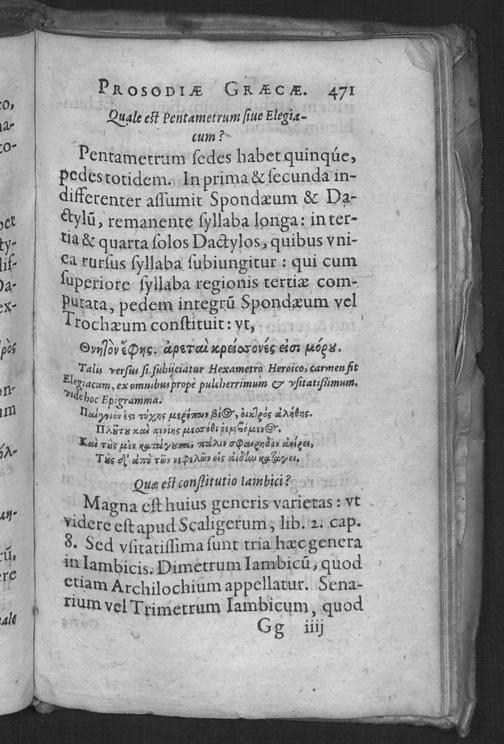 PROSODIÆ GRÆCÆ. 471
Quale est Pentametrum siue Elegia-
cum?
Pentametrum sedes habet quinqúe,
pedes totidem. In prima & secunda in-
differenter assumit Spondæum & Da-
ctylũ, remanente syllaba longa: in ter-
tia & quarta solos Dactylos, quibus vni-
ca rursus syllaba subiungitur: qui cum
superiore syllaba regionis tertiæ com-
putata, pedem integrũ Spondæum vel
Trochæum constituit: vt,
Θνητὸν ἔφης. ἀρεταὶ κρείσσονές εἰσι μόρου.
Talis versus si subijciatur Hexametro Heroico, carmen fit
Elegiacum, ex omnibus prope pulcherrimum & vsitatissimum.
vide hoc Epigramma.
Παίγνιόν ἐστι τύχης μερόπων βίος, οἰκτρὸς ἀλήτης,
Πλούτου καὶ πενίης μεσσόθι ῥεμβόμενος.
Καὶ τοὺς μὲν κατάγουσα πάλιν σφαιρηδὸν ἀείρει,
Τοὺς δ' ἀπὸ τῶν νεφελῶν εἰς ἀίδην κατάγει.
Quæ est constitutio Iambici?
Magna est huius generis varietas: vt
videre est apud Scaligerum, lib. 2. cap.
8. Sed vsitatissima sunt tria hæc genera
in Iambicis. Dimetrum Iambicũ, quod
etiam Archilochium appellatur. Sena-
rium vel Trimetrum Iambicum, quod
Gg iiij